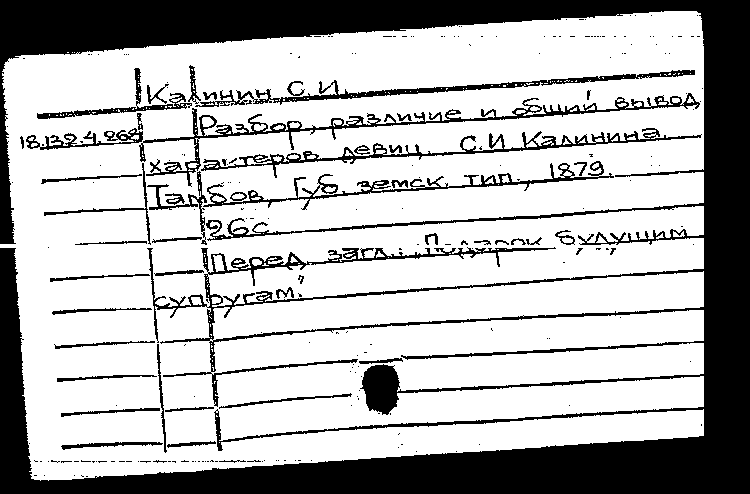 Калинин, С.И.
18.132.4.268 Разбор, различие и общий вывод
характеров девиц. С.И Калинина.
Тамбов, Губ. земск. тип., 1879.
26с
Перед загл.: „Подарок будущим
супругам."